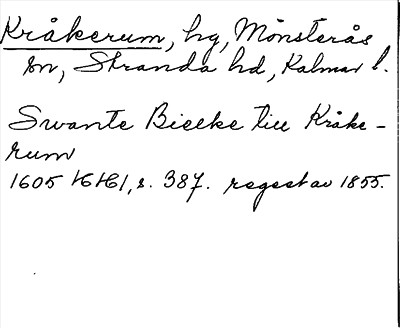 Kråkerum, hg, Mönsterås
sn, Stranda hd, Kalmar l.
Swante Bielke till Kråke-
rum
1605 HH1, s. 387. regest av 1855.